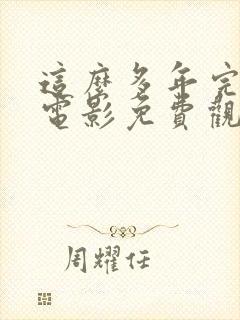 這麼多年完
電影免費觀
周耀任